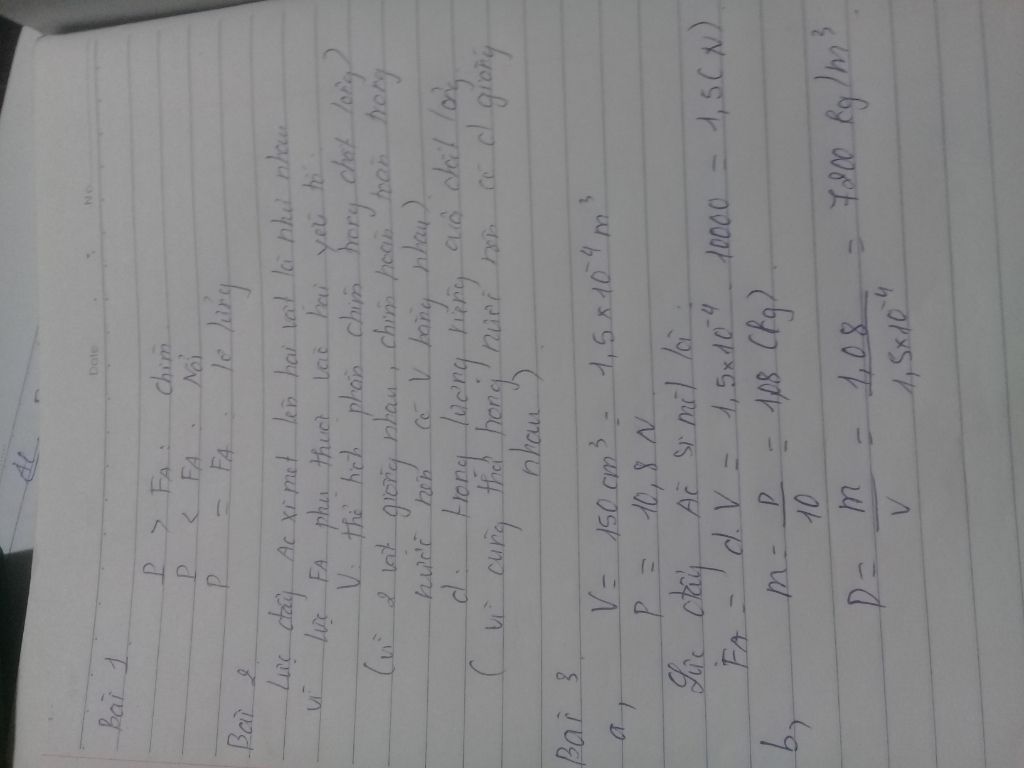 Date No.
Bài 1
P > FA : chìm
P < FA : Nổi
P = FA : lơ lửng
Bài 2
Lực đẩy Ac ximet lên hai vật là như nhau
vì lực FA phụ thuộc vào hai yếu tố
V : thể tích phần chìm trong chất lỏng)
(vì 2 vật giống nhau, chìm hoàn toàn trong
nước nên có V bằng nhau)
d : trọng lượng riêng của chất lỏng
(vì cùng thả trong nước nên có d giống
nhau)
Bài 3
a, V = 150 cm³ = 1,5 × 10⁻⁴ m³
P = 10,8 N
Lực đẩy Ác si mét là
FA = d. V = 1,5×10⁻⁴ . 10000 = 1,5 (N)
b, m = P/10 = 1,08 (kg)
D = m/V = 1,08/1,5×10⁻⁴ = 7200 kg/m³